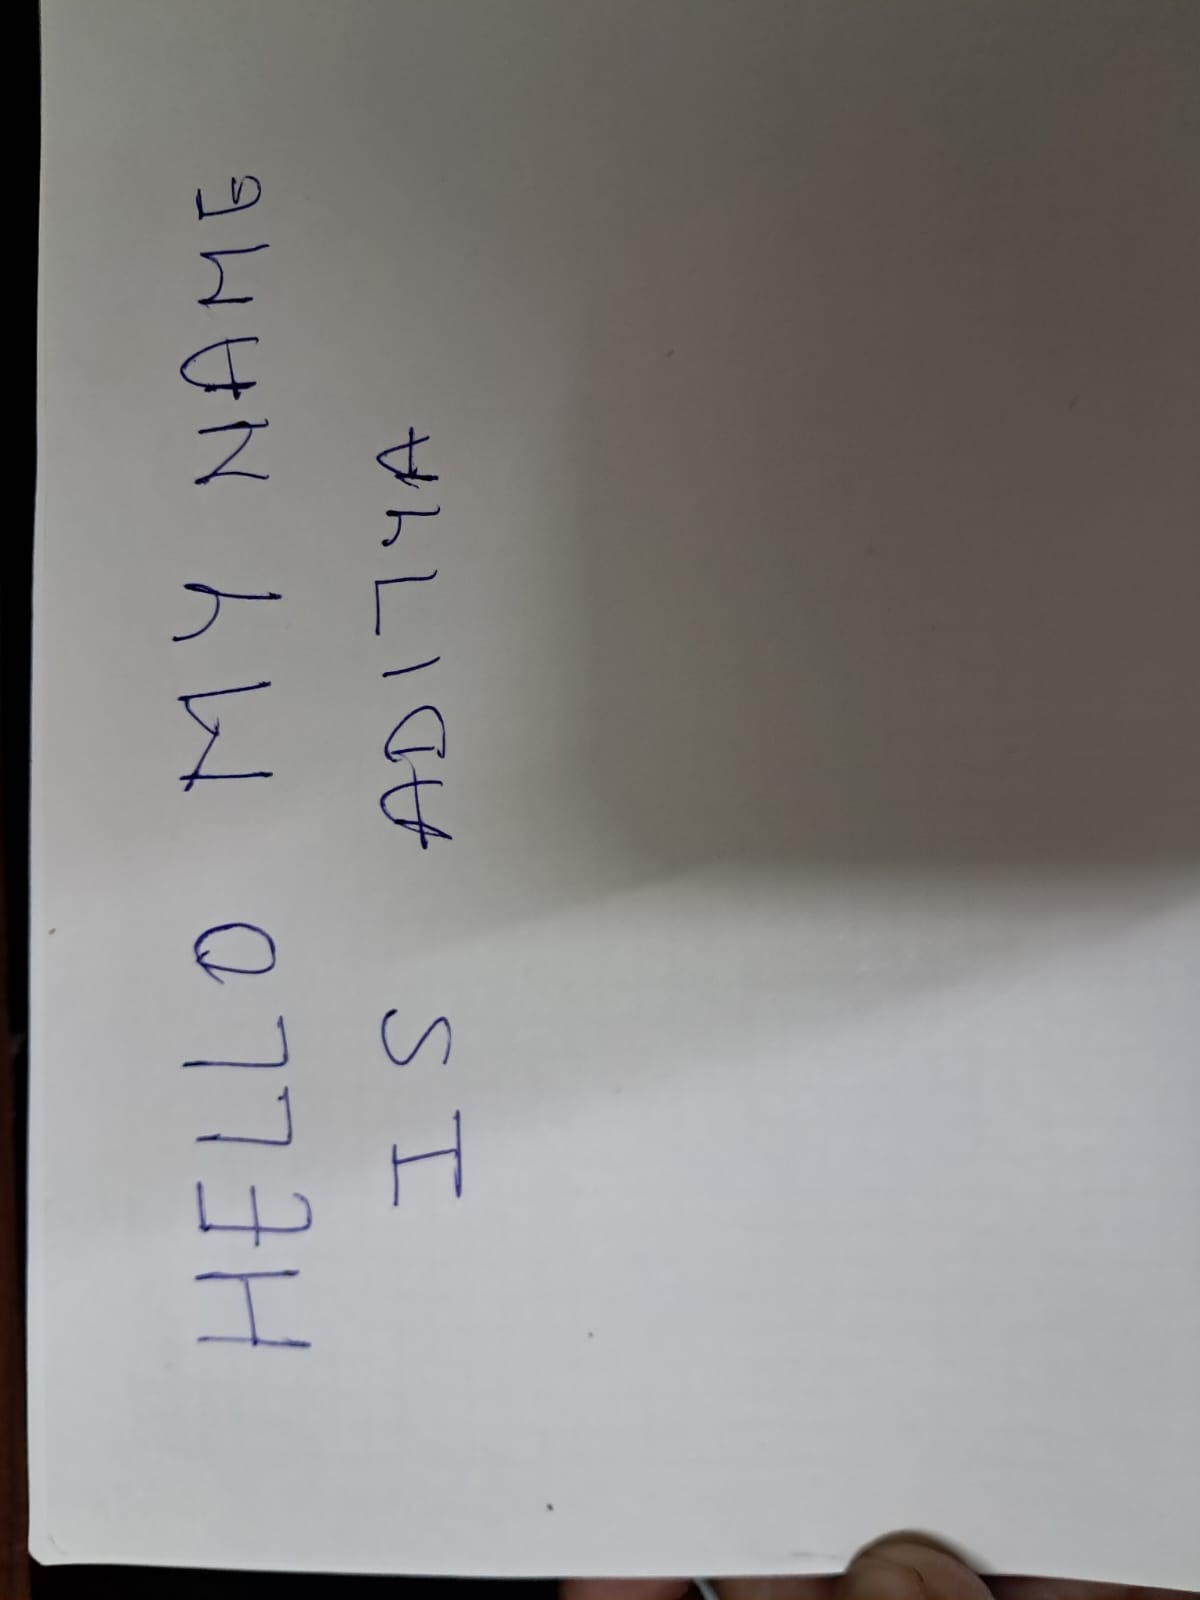 HELLO MY NAME
IS ADITYA